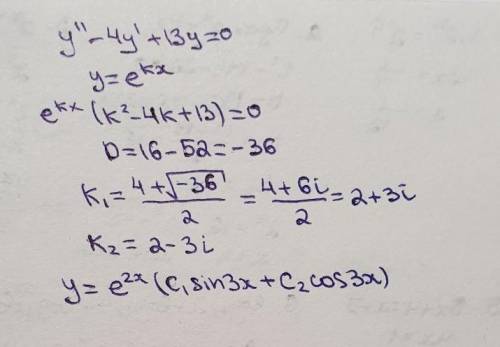 y'' - 4y' + 13y = 0
y = e^{kx}
e^{kx} (k² - 4k + 13) = 0
D = 16 - 52 = -36
K₁ = \frac{4 + \sqrt{-36}}{2} = \frac{4 + 6i}{2} = 2 + 3i
K₂ = 2 - 3i
y = e^{2x} (C₁ sin3x + C₂ cos3x)